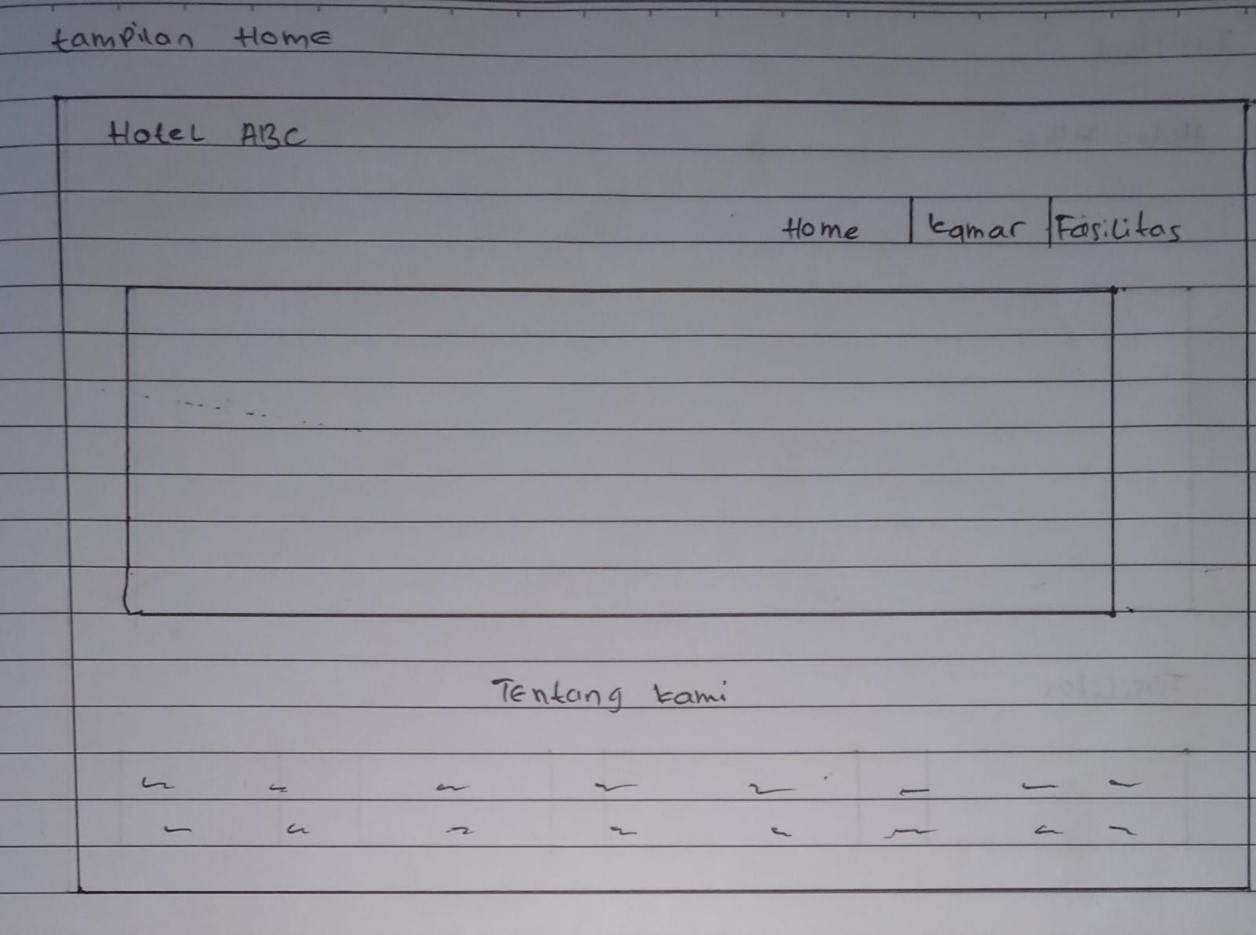 tampilan Home
Hotel ABC
Home | kamar | Fasilitas
Tentang kami